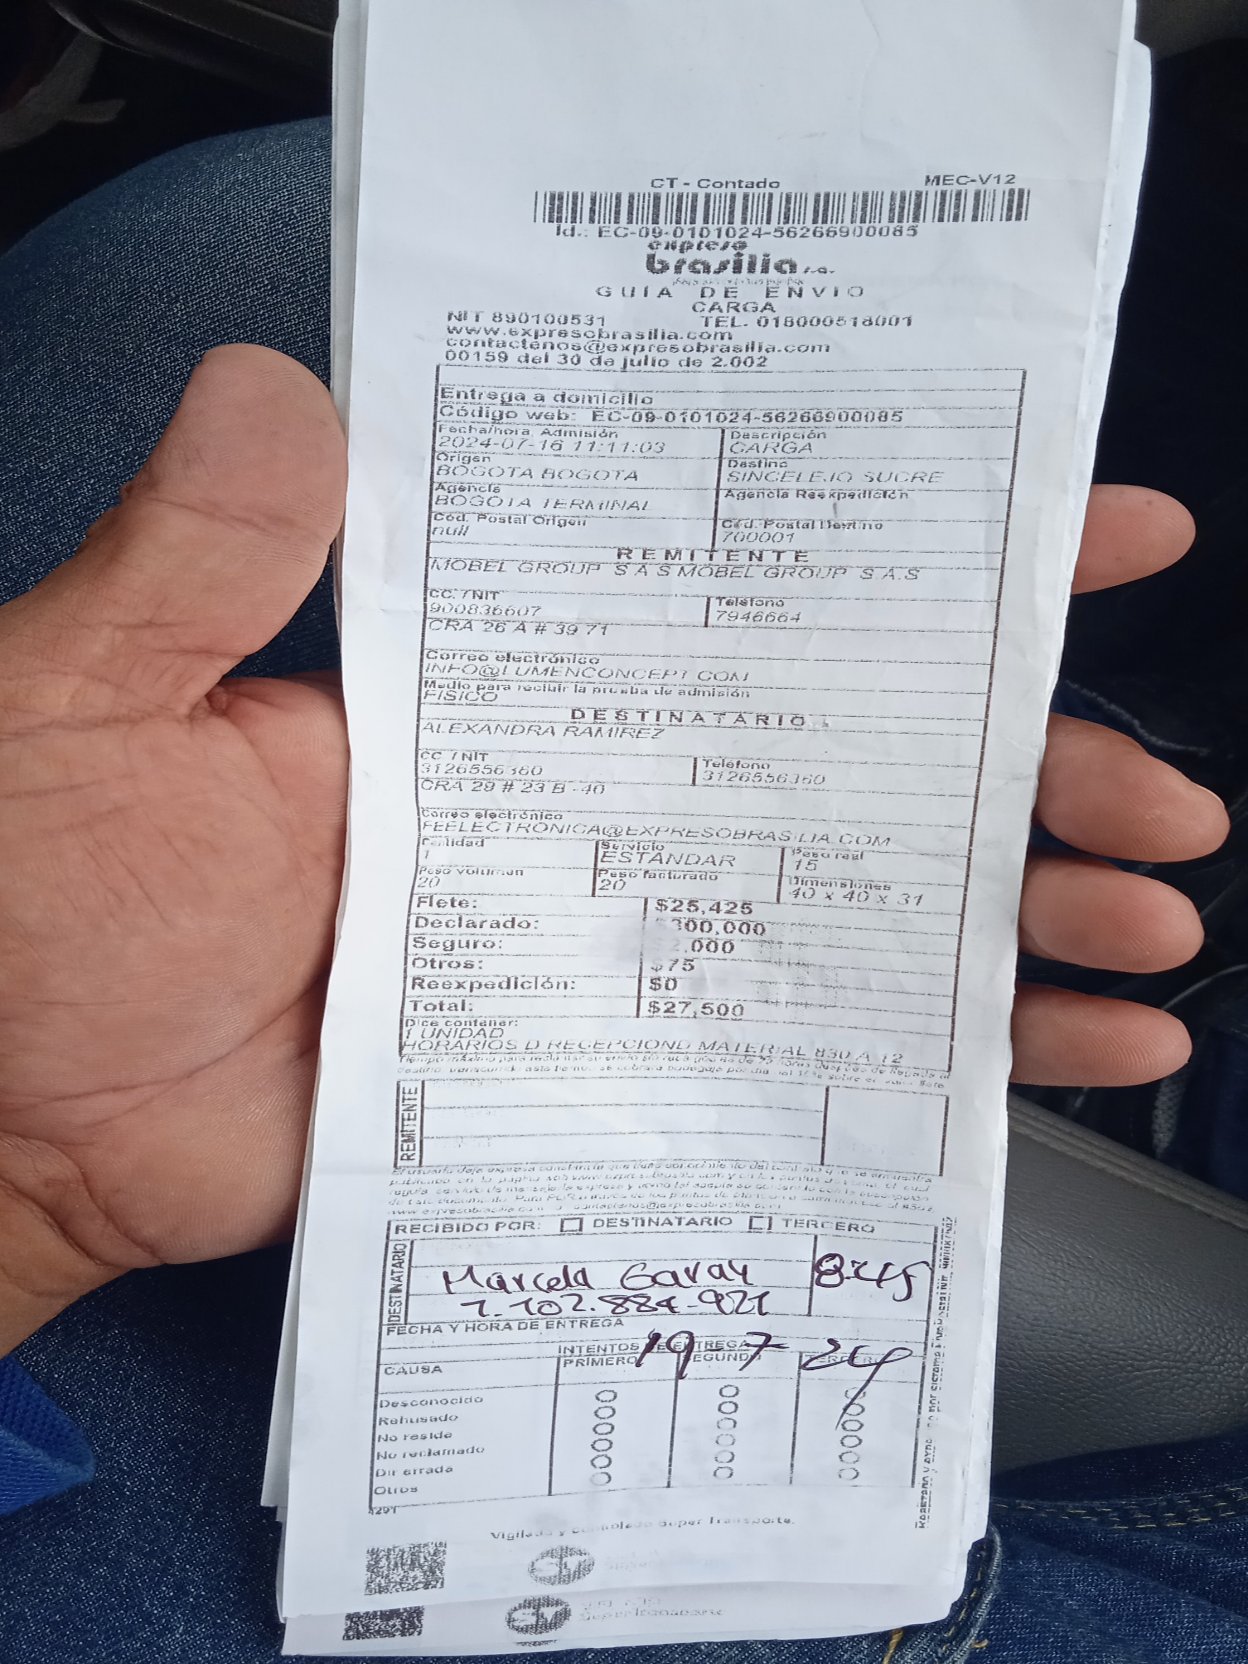 CT - Contado MEC-V12
Id.: EC-09-0101024-56266900085
expreso
brasilia s.a.
GUIA DE ENVIO
CARGA
NIT 890100531 TEL. 018000518001
www.expresobrasilia.com
contactenos@expresobrasilia.com
00159 del 30 de julio de 2.002
Entrega a domicilio
Código web: EC-09-0101024-56266900085
Fecha/hora Admisión Descripción
2024-07-16 11:11:03 CARGA
Origen Destino
BOGOTA BOGOTA SINCELEJO SUCRE
Agencia Agencia Reexpedición
BOGOTA TERMINAL
Cód. Postal Origen Cód. Postal Destino
null 700001
REMITENTE
MOBEL GROUP S A S MOBEL GROUP S.A.S
CC. / NIT Teléfono
900836607 7946664
CRA 26 A # 39 71
Correo electrónico
INFO@LUMENCONCEPT.COM
Medio para recibir la prueba de admisión
FISICO
DESTINATARIO
ALEXANDRA RAMIREZ
CC / NIT Teléfono
3126556360 3126556360
CRA 29 # 23 B -40
Correo electrónico
FEELECTRONICA@EXPRESOBRASILIA.COM
Cantidad Servicio Peso real
1 ESTANDAR 15
Peso volumen Peso facturado Dimensiones
20 20 40 x 40 x 31
Flete: $25,425
Declarado: $300,000
Seguro: $2,000
Otros: $75
Reexpedición: $0
Total: $27,500
Dice contener:
1 UNIDAD
HORARIOS D RECEPCIOND MATERIAL 830 A 12
REMITENTE
RECIBIDO POR: DESTINATARIO TERCERO
DESTINATARIO
Marcela Garay 8:45
1.102.884-921
FECHA Y HORA DE ENTREGA
19-7-24
INTENTOS DE ENTREGA
CAUSA PRIMERO SEGUNDO TERCERO
Desconocido
Rehusado
No reside
No reclamado
Dir errada
Otros
4291
Vigilado y controlado Super Transporte.